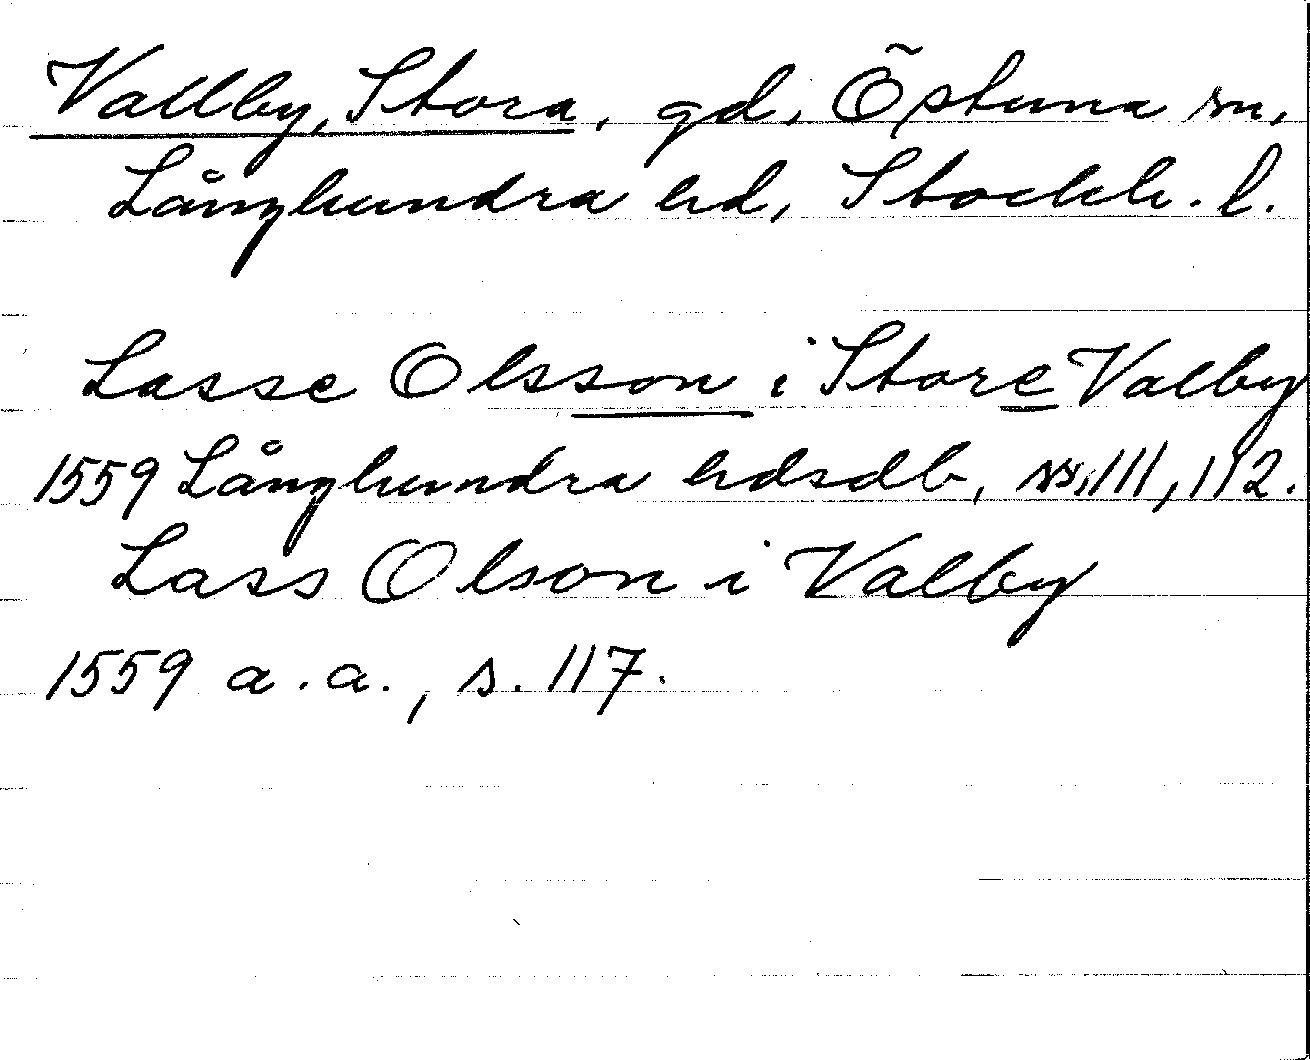 Vallby, Stora, gd, Östuna sn,
Långhundra hd, Stockh. l.
Lasse Olsson i Store Valby
1559 Långhundra hdsdb, ss. 111, 112.
Lass Olson i Valby
1559 a.a., s. 117.